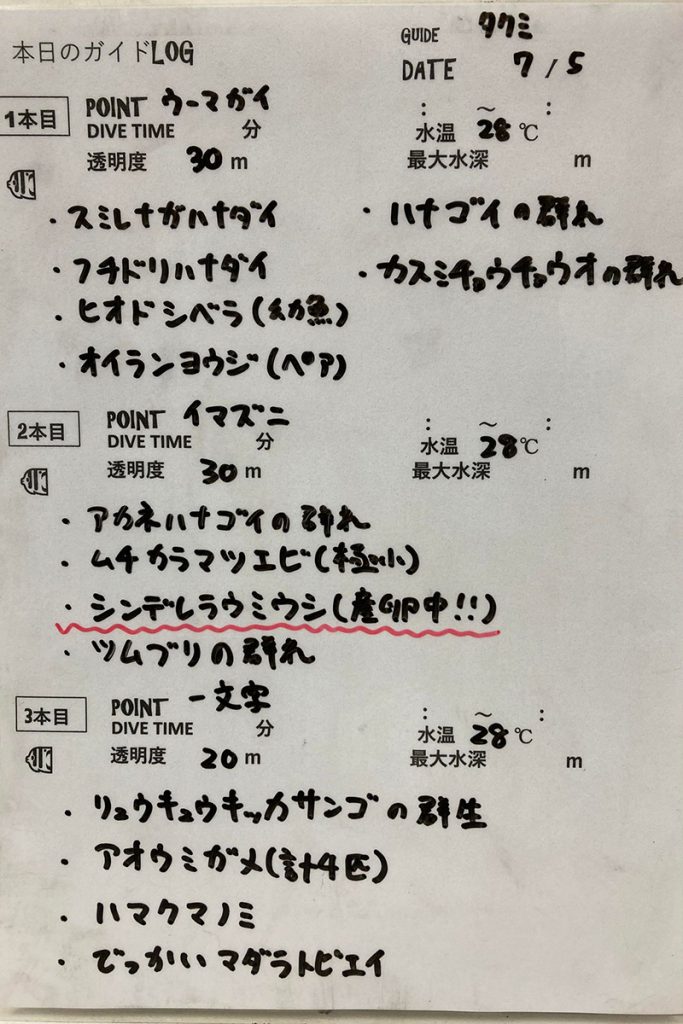 本日のガイドLOG
GUIDE タクミ
DATE 7/5
1本目 POINT ウーマガイ
DIVE TIME 分 : ～ :
透明度 30 m 水温 28 ℃
最大水深 m
・スミレナガハナダイ ・ハナゴイの群れ
・フチドリハナダイ ・カスミチョウチョウオの群れ
・ヒオドシベラ(幼魚)
・オイランヨウジ(ペア)
2本目 POINT イマズニ
DIVE TIME 分 : ～ :
透明度 30 m 水温 28 ℃
最大水深 m
・アカネハナゴイの群れ
・ムチカラマツエビ(極小)
・シンデレラウミウシ(産卵中!!)
・ツムブリの群れ
3本目 POINT 一文字
DIVE TIME 分 : ～ :
透明度 20 m 水温 28 ℃
最大水深 m
・リュウキュウキッカサンゴの群生
・アオウミガメ(計4匹)
・ハマクマノミ
・でっかいマダラトビエイ